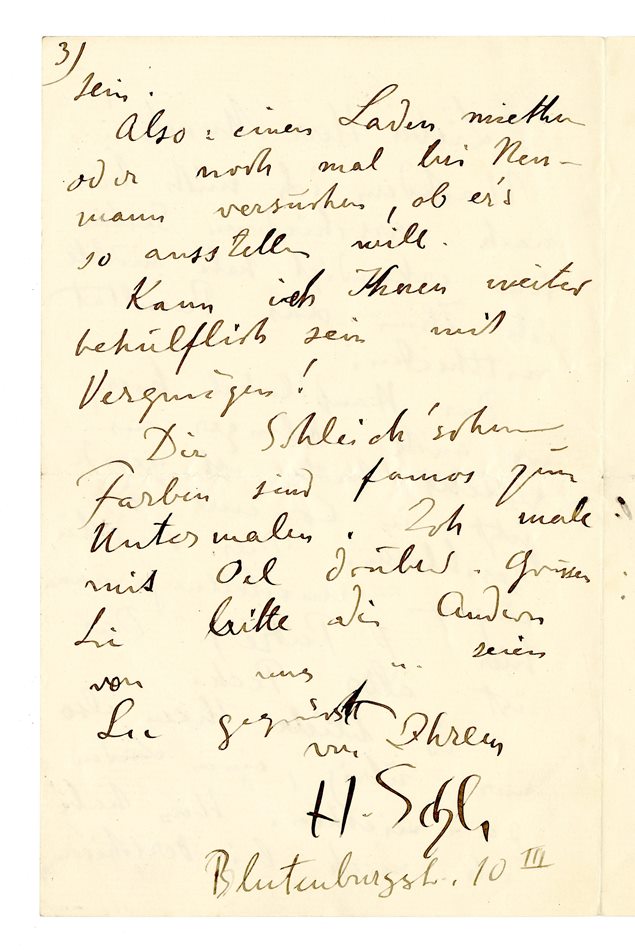 3)
sein.
Also: einen Laden miethen
oder noch mal bei Neu-
mann versuchen, ob er's
so ausstellen will.
Kann ich Ihnen weiter
behülflich sein mit
Vergnügen!
Die Schleich'schen
Farben sind famos zum
Untermalen. Ich male
mit Oel drüber. Grüssen
Sie bitte die Andern
von uns u. seien
Sie gegrüsst
von Ihrem
H. Schl.
Blutenburgstr. 10 III